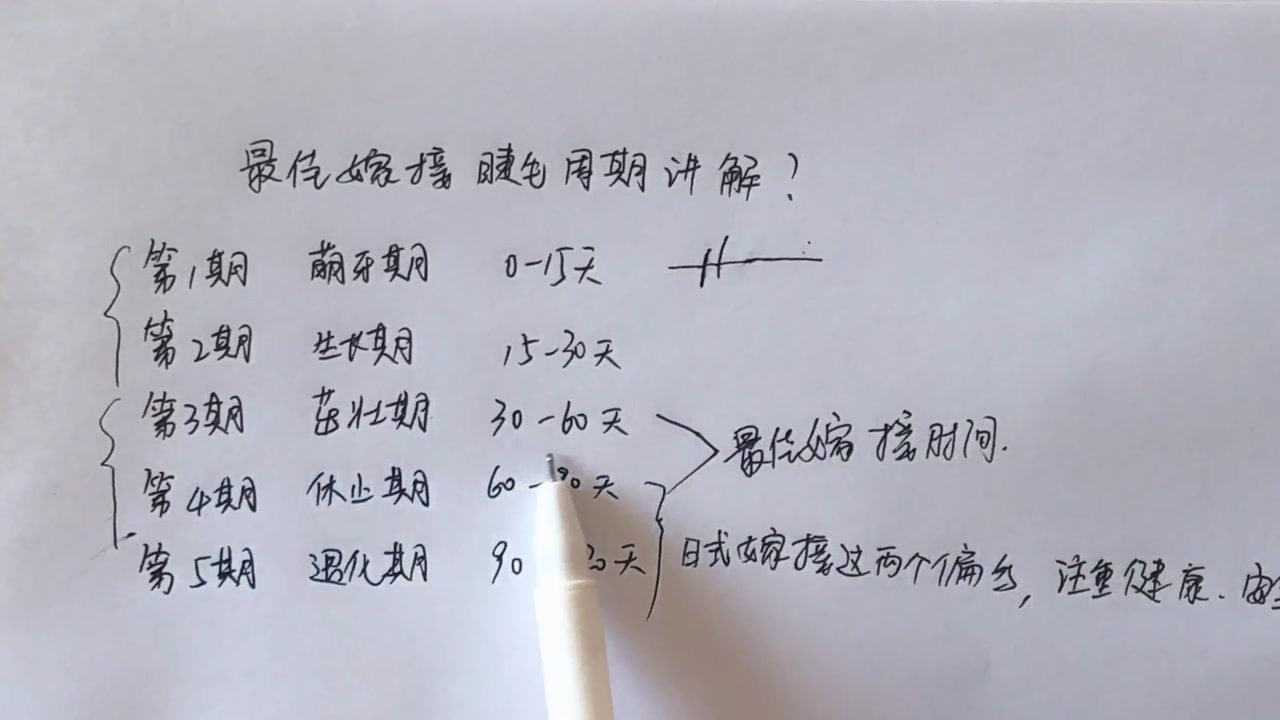 最佳嫁接睫毛周期讲解？
第1期 萌牙期 0-15天
第2期 生长期 15-30天
第3期 茁壮期 30-60天
最佳嫁接时间.
第4期 休止期 60-90天
第5期 退化期 90 0天
日式嫁接这两个偏多，注重健康.